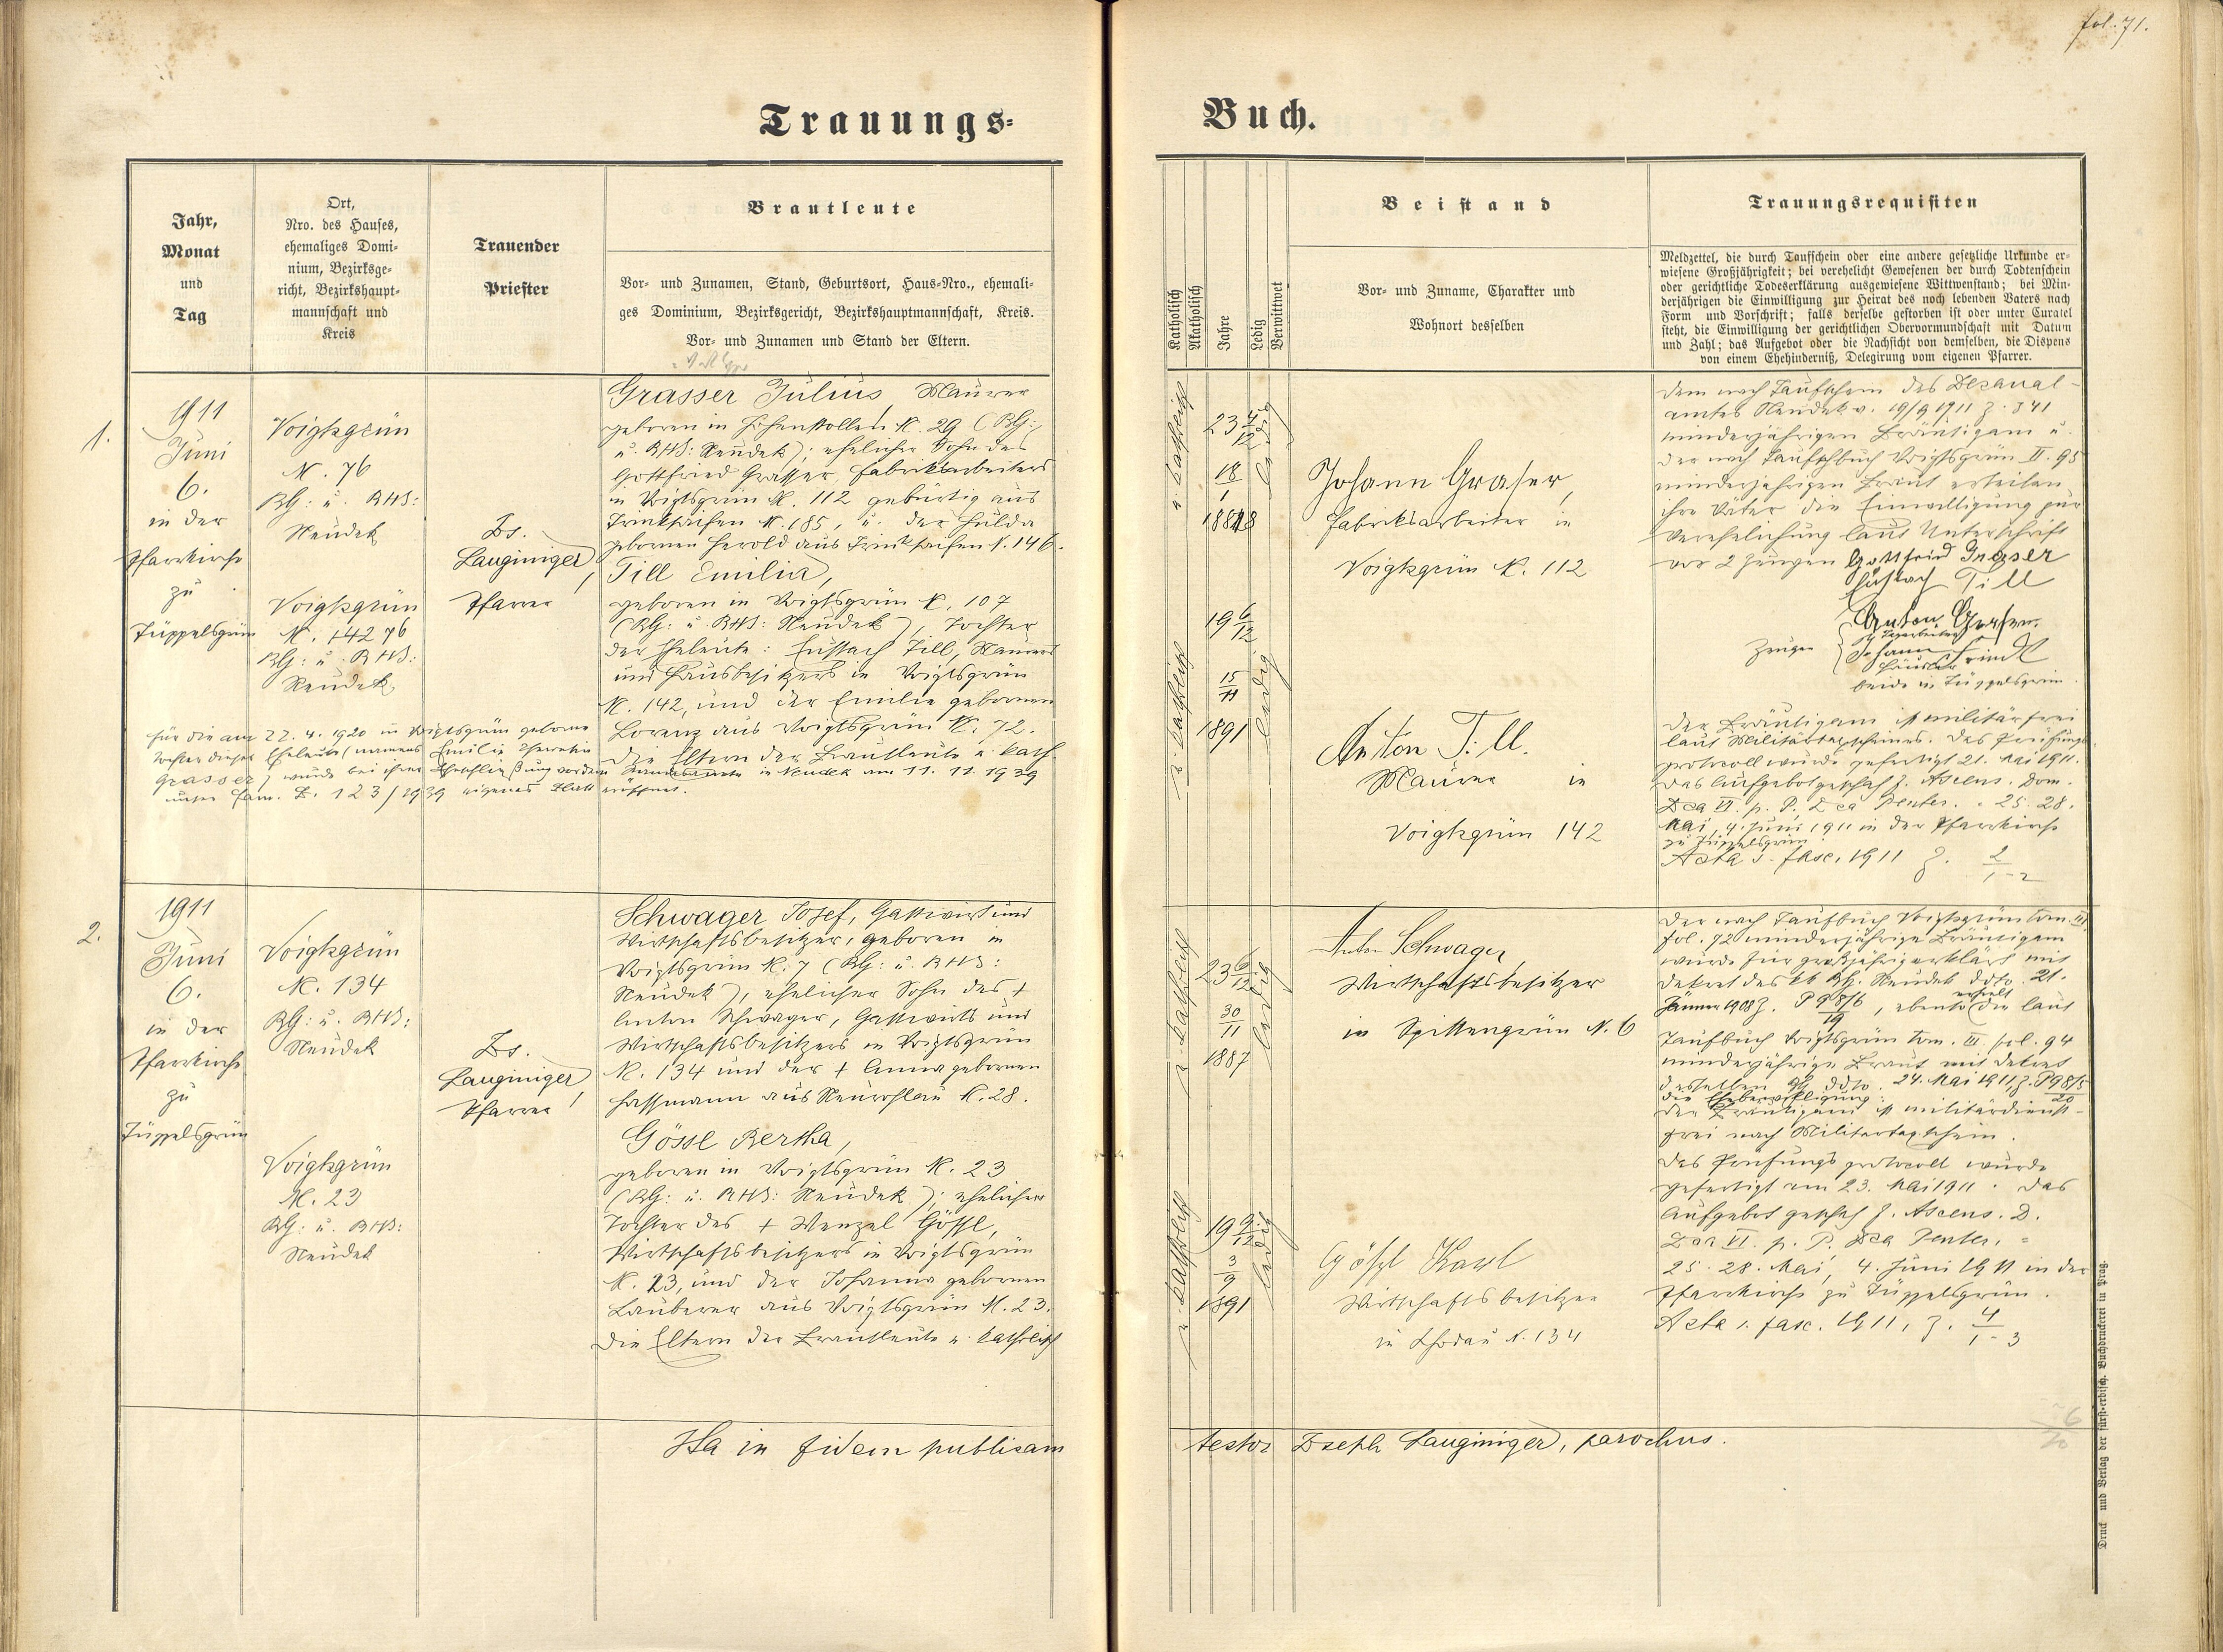 fol. 71.
Trauungs-
Buch.
Jahr,
Monat
und
Tag
Ort,
Nro. des Hauses,
ehemaliges Domi-
nium, Bezirksge-
richt, Bezirkshaupt-
mannschaft und
Kreis
Trauender
Priester
Brautleute
Vor- und Zunamen, Stand, Geburtsort, Haus-Nro., ehemali-
ges Dominium, Bezirksgericht, Bezirkshauptmannschaft, Kreis.
Vor- und Zunamen und Stand der Eltern.
Katholisch
Akatholisch
Jahre
Ledig
Verwittwet
Beistand
Vor- und Zuname, Charakter und
Wohnort desselben
Trauungsrequisiten
Meldzettel, die durch Taufschein oder eine andere gesetzliche Urkunde er-
wiesene Großjährigkeit; bei verehelicht Gewesenen der durch Todtenschein
oder gerichtliche Todeserklärung ausgewiesene Wittwenstand; bei Min-
derjährigen die Einwilligung zur Heirat des noch lebenden Vaters nach
Form und Vorschrift; falls derselbe gestorben ist oder unter Curatel
steht, die Einwilligung der gerichtlichen Obervormundschaft mit Datum
und Zahl; das Aufgebot oder die Nachsicht von demselben, die Dispens
von einem Ehehinderniß, Delegirung vom eigenen Pfarrer.
1.
1911
Juni
6.
in der
Pfarrkirche
zu
Tüppelsgrün
Voigtsgrün
N. 76
BG: u. BHS:
Neudek
Voigtsgrün
N. 142 76
BG: u. BHS:
Neudek
Js.
Lauginiger,
Pfarrer
Grasser Julius, Maurer
geboren in Hohenstollen N. 29 (BG:
u. BHS: Neudek); ehelicher Sohn des
Gottfried Grasser, Fabriksarbeiters
in Voigtsgrün N. 112 gebürtig aus
Trinksaifen N. 185, u. der Hulda
gebornen Herold aus Trinksaifen N. 146.
Till Emilia,
geboren in Voigtsgrün N. 107
(BG: u. BHS: Neudek), Tochter
der Eheleute: Eustach Till, Maurers
und Hausbesitzers in Voigtsgrün
N. 142, und der Emilie gebornen
Lorenz aus Voigtsgrün N. 72.
Die Eltern der Brautleute r. kath.
für die am 22. 4. 1920 in Voigtsgrün geborne
Tochter dieser Eheleute (namens Emilie
Grasser) wurde bei ihrer Eheschließung vor dem Standesamte in Neudek am 11. 11. 1939
unter Fam. B. 123/1939 eigenes Blatt eröffnet.
r. katholisch
23 4/12
18
1
1888
ledig
Johann Graser,
Fabriksarbeiter in
Voigtsgrün N. 112
r. katholisch
19 6/12
15
11
1891
ledig
Anton Till.
Maurer in
Voigtsgrün 142
Dem nach Taufschein des Dekanal-
amtes Neudek v. 19/9 1911 Z. 341
minderjährigen Bräutigam u.
der nach Taufbuch Voigtsgrün II. 95
minderjährigen Braut erteilen
ihre Väter die Einwilligung zur
Verehelichung laut Unterschrift
vor 2 Zeugen Gottfried Graser
Eustach Till
Anton Graser
Zeugen
Johann
Häusler
beide in Tüppelsgrün.
Der Bräutigam ist militärfrei
laut Militärtaxscheines. Das Prüfungs-
protocoll wurde gefertigt 21. Mai 1911.
Das Aufgebot geschah f. Ascens. Dom.
Dca VI. p. P. Dca Pentec. = 25. 28.
Mai, 4. Juni 1911 in der Pfarrkirche
zu Tüppelsgrün
Acta s. fasc. 1911 Z. 2/1-2
2.
1911
Juni
6.
in der
Pfarrkirche
zu
Tüppelsgrün
Voigtsgrün
N. 134
BG: u. BHS:
Neudek
Voigtsgrün
N. 23
BG: u. BHS:
Neudek
Js.
Lauginiger,
Pfarrer
Schwager Josef, Gastwirt und
Wirtschaftsbesitzer, geboren in
Voigtsgrün N. 7 (BG: u. BHS:
Neudek), ehelicher Sohn des +
Anton Schwager, Gastwirts und
Wirtschaftsbesitzers in Voigtsgrün
N. 134 und der + Anna gebornen
Hassmann aus Neurohlau N. 28.
Gössl Bertha,
geboren in Voigtsgrün N. 23
(BG: u. BHS: Neudek); eheliche
Tochter des + Wenzel Gössl,
Wirtschaftsbesitzers in Voigtsgrün
N. 23, und der Johanna gebornen
Lauberer aus Voigtsgrün N. 23.
Die Eltern der Brautleute r. katholisch
r. katholisch
23 6/12
30
11
1887
ledig
Anton Schwager
Wirtschaftsbesitzer
in Spittengrün N. 6
r. katholisch
19 9/12
3
9
1891
ledig
Gößl Karl
Wirtschaftsbesitzer
in Chodau N. 134
Der nach Taufbuch Voigtsgrün tom. III.
fol. 72 minderjährige Bräutigam
wurde für großjährig erklärt mit
Dekret des kk BG. Neudek ddto. 21.
Jänner 1908 Z. P 98/6/19, ebenso erhielt die laut
Taufbuch Voigtsgrün tom. III. fol. 94
minderjährige Braut mit Dekret
desselben BG. ddto. 24. Mai 1911, Z. P 98/5/20
die Ehebewilligung.
Der Bräutigam ist militärdienst-
frei nach Militärtaxschein.
Das Prüfungsprotocoll wurde
gefertigt am 23. Mai 1911. Das
Aufgebot geschah f. Ascens. D.
Dca VI. p. P. Dca Pentec. =
25. 28. Mai, 4. Juni 1911 in der
Pfarrkirche zu Tüppelsgrün.
Acta s. fasc. 1911, Z. 4/1-3
Ita in fidem publicam
testor Joseph Lauginiger, parochus.
Druck und Verlag der fürst-erzbisch. Buchdruckerei in Prag.